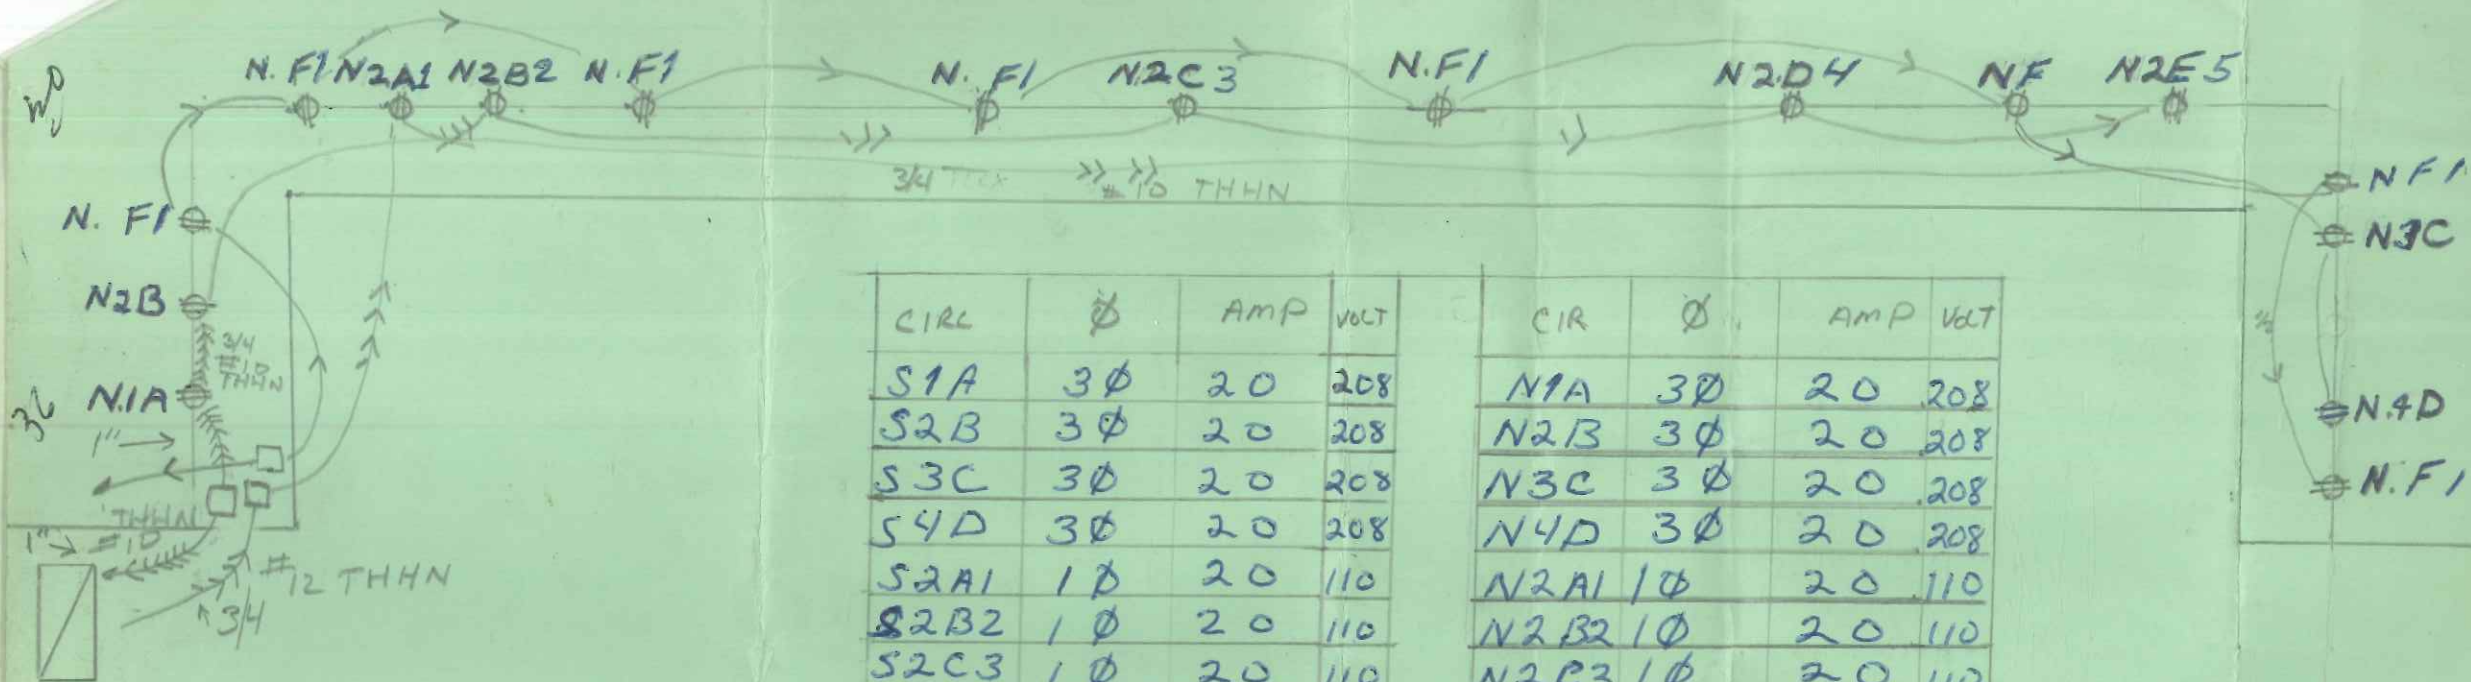 N. F1 N2A1 N2B2 N.F1 N. F1 N.2C3 N.F1 N2.D4 NF N2E5
3/4 #10 THHN
N. F1
NF1
N3C
N2B
3/4
#10
THHN
N.1A
36
1"
N.4D
N.F1
THHN
1" #10
#12 THHN
3/4
CIRC Ø AMP VOLT
S1A 3Ø 20 208
S2B 3Ø 20 208
S3C 3Ø 20 208
S4D 3Ø 20 208
S2A1 1Ø 20 110
S2B2 1Ø 20 110
S2C3 1Ø 20 110
CIR Ø AMP VOLT
N1A 3Ø 20 208
N2B 3Ø 20 208
N3C 3Ø 20 208
N4D 3Ø 20 208
N2A1 1Ø 20 110
N2B2 1Ø 20 110
N2C3 1Ø 20 110